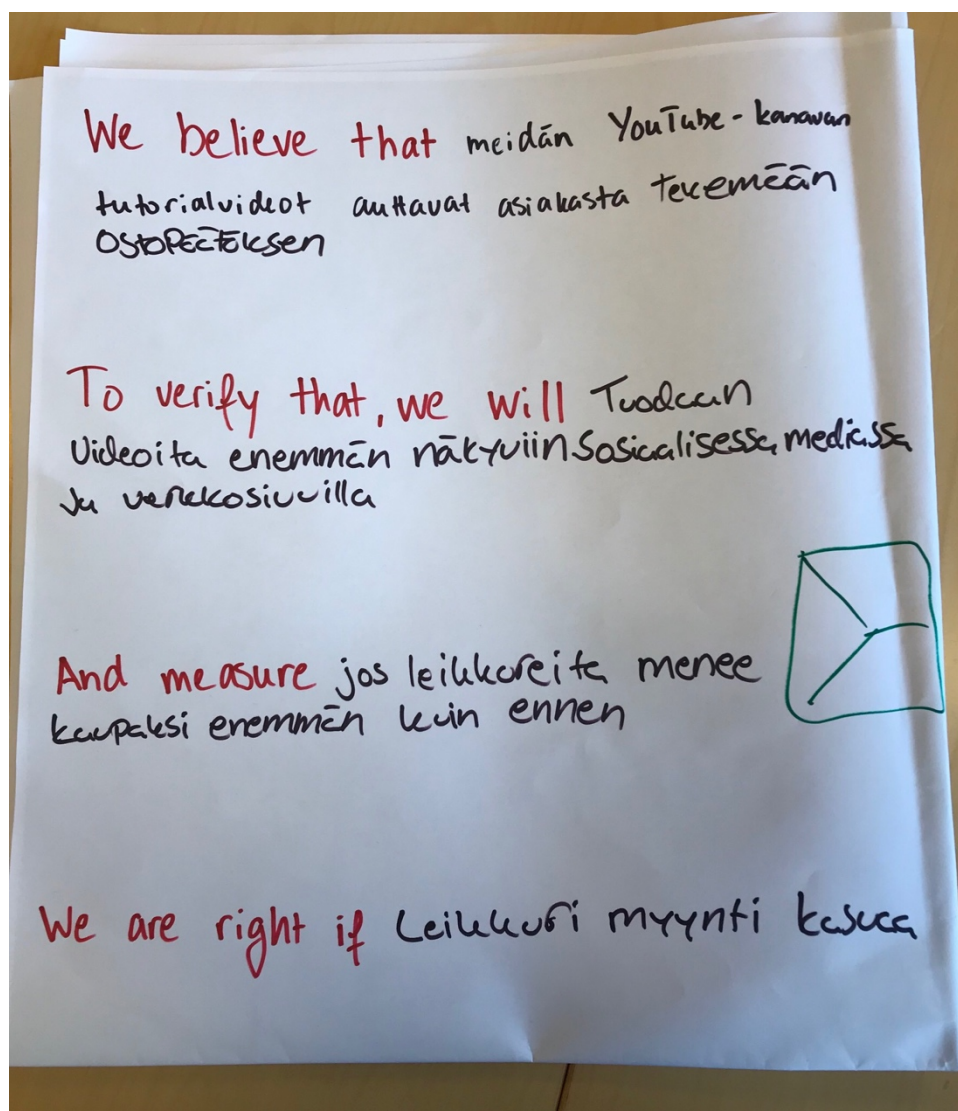 We believe that meidän YouTube-kanavan
tutorialvideot auttavat asiakasta tekemään
ostopäätöksen
To verify that, we will Tuodaan
videoita enemmän näkyviin sosiaalisessa mediassa
ja verkkosivuilla
And measure jos leikkureita menee
kaupaksi enemmän kuin ennen
We are right if Leikkuri myynti kasvaa